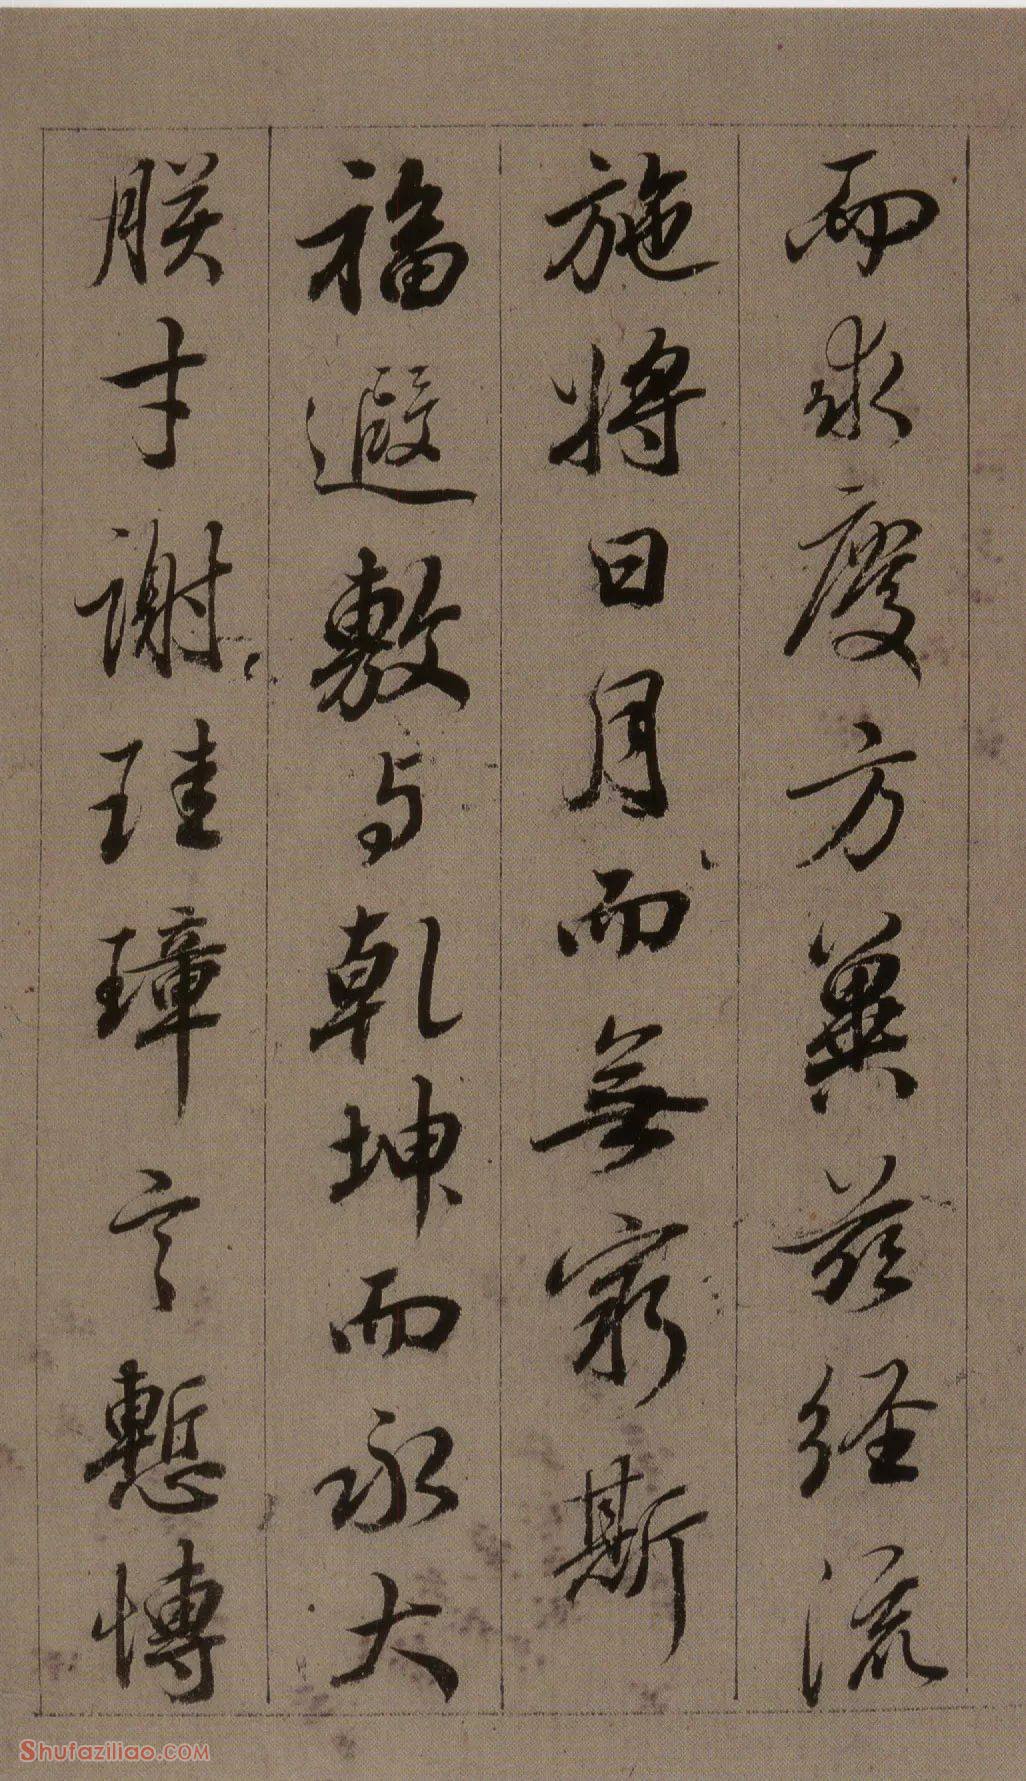 而求慶方冀茲经流
施將日月而無窮斯
福遐敷与乾坤而永大
朕才謝珪璋言慙博
Shufaziliao.COM